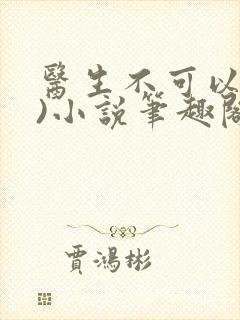 醫生不可以
)小說筆趣閣
賈鴻彬